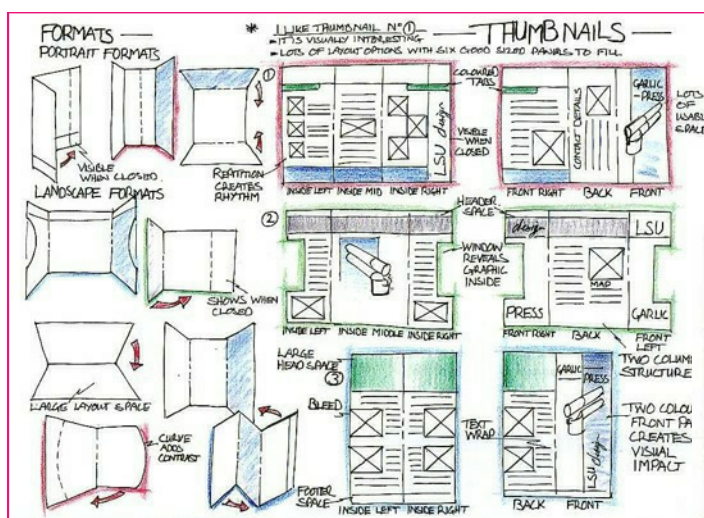 FORMATS
PORTRAIT FORMATS
VISIBLE
WHEN CLOSED.
LANDSCAPE FORMATS
SHOWS WHEN
CLOSED
LARGE LAYOUT SPACE
CURVE
ADDS
CONTRAST
* I LIKE THUMBNAIL Nº ①
- IT IS VISUALLY INTERESTING
- LOTS OF LAYOUT OPTIONS WITH SIX GOOD SIZED PANELS TO FILL
THUMBNAILS
①
COLOURED
TABS
LSU design
VISIBLE
WHEN
CLOSED
REPTITION
CREATES
RHYTHM
INSIDE LEFT
INSIDE MID
INSIDE RIGHT
CONTACT DETAILS
GARLIC
- PRESS
LOTS
OF
USABLE
SPACE
FRONT RIGHT
BACK
FRONT
②
HEADER
SPACE
WINDOW
REVEALS
GRAPHIC
INSIDE
INSIDE LEFT
INSIDE MIDDLE
INSIDE RIGHT
design
LSU
MAP
PRESS
GARLIC
FRONT RIGHT
BACK
FRONT
LEFT
TWO COLUM
STRUCTURE
LARGE
HEAD SPACE
③
BLEED
FOOTER
SPACE
INSIDE LEFT
INSIDE RIGHT
TEXT
WRAP
GARLIC
PRESS
LSU design
BACK
FRONT
TWO COLOU
FRONT PA
CREATES
VISUAL
IMPACT